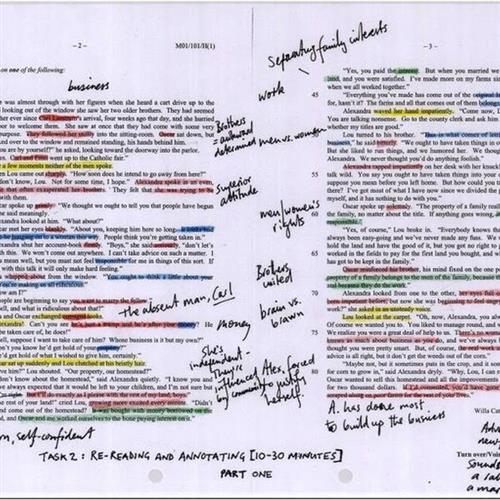 – 2 –
M01/101/H(1)
on one of the following:
business
was almost through with her figures when she heard a cart drive up to the
looking out of the window she saw her two older brothers. They had seemed
her ever since Carl Linstrum's arrival, four weeks ago that day, and she hurried
oor to welcome them. She saw at once that they had come with some very
purpose. They followed her stiffly into the sitting-room. Oscar sat down, but
ed over to the window and remained standing, his hands behind him.
are by yourself?" he asked, looking toward the doorway into the parlor.
Carl and Emil went up to the Catholic fair."
a few moments neither of the men spoke.
Lou came out sharply. "How soon does he intend to go away from here?"
know, Lou. Not for some time, I hope." Alexandra spoke in an even,
that often exasperated her brothers. They felt that she was trying to be
with them.
spoke up grimly. "We thought we ought to tell you that people have begun
he said meaningly.
exandra looked at him. "What about?"
met her eyes blankly. "About you, keeping him here so long.
hanging on to a woman this way. People think you're getting taken in."
exandra shut her account-book firmly. "Boys," she said seriously, "don't let's
this. We won't come out anywhere. I can't take advice on such a matter. I
mean well, but you must not feel responsible for me in things of this sort. If
with this talk it will only make hard feeling."
whipped about from the window. "You ought to think a little about your
ou're making us all ridiculous."
am I?"
eople are beginning to say you want to marry the fellow."
and what is ridiculous about that?"
and Oscar exchanged outraged looks.
lexandra! Can't you see he's just a tramp and he's after your money? He
ell, suppose I want to take care of him? Whose business is it but my own?"
on't you know he'd get hold of your property?"
e'd get hold of what I wished to give him, certainly."
car sat up suddenly and Lou clutched at his bristly hair.
m?" Lou shouted. "Our property, our homestead?"
don't know about the homestead," said Alexandra quietly. "I know you and
ve always expected that it would be left to your children, and I'm not sure but
right. But I'll do exactly as I please with the rest of my land, boys."
rest of your land!" cried Lou, growing more excited every minute. "Didn't
nd come out of the homestead? It was bought with money borrowed on the
and Oscar and me worked ourselves to the bone paying interest on it."
Separating family interests
work
Brothers
= authorial
determined men vs. women
Superior
attitude
men/women's
rights
Brothers
united
The absent man, Carl
money
brain vs.
brawn
She's
independent
by community
herself.
A. has done most
to build up the business
self-confident
TASK 2: RE-READING AND ANNOTATING [10-30 MINUTES]
PART ONE
– 3 –
"Yes, you paid the interest. But when you married we
land, and you were satisfied. I've made more on my farms since
when we all worked together."
45
"Everything you've made has come out of the original land
for, hasn't it? The farms and all that comes out of them belong
Alexandra waved her hand impatiently. "Come now, Lou.
You are talking nonsense. Go to the county clerk and ask him
whether my titles are good."
50
Lou turned to his brother. "This is what comes of letting
business," he said bitterly. "We ought to have taken things in our
But she liked to run things, and we humored her. We thought
Alexandra. We never thought you'd do anything foolish."
Alexandra rapped impatiently on her desk with her knuckles.
55
talk wild. You say you ought to have taken things into your
suppose you mean before you left home. But how could you
there? I've got most of what I have now since we divided the property
and it has nothing to do with you."
Oscar spoke up solemnly. "The property of a family really
60
the family, no matter about the title. If anything goes wrong,
responsible."
"Yes, of course," Lou broke in. "Everybody knows that
always been easy-going and we've never made any fuss. We
hold the land and have the good of it, but you got no right to
65
worked in the fields to pay for the first land you bought, and
has got to be kept in the family."
Oscar reinforced his brother, his mind fixed on the one
property of a family belongs to the men of the family, because
and because they do the work."
70
Alexandra looked from one to the other, her eyes full of
been impatient before, but now she was beginning to feel angry.
work?" she asked in an unsteady voice.
Lou looked at the carpet. "Oh, now, Alexandra, you always
Of course we wanted you to. You liked to manage round, and
75
We realize you were a great deal of help to us. There's no woman
knows as much about business as you do, and we've always
thought you were pretty smart. But, of course, the real work
advice is all right, but it don't get the weeds out of the corn."
"Maybe not, but it sometimes puts in the crop, and it sometimes
80
for corn to grow in," said Alexandra dryly. "Why, Lou, I can remember
Oscar wanted to sell this homestead and all the improvements
for two thousand dollars.
Willa Cather
Turn over/Voir